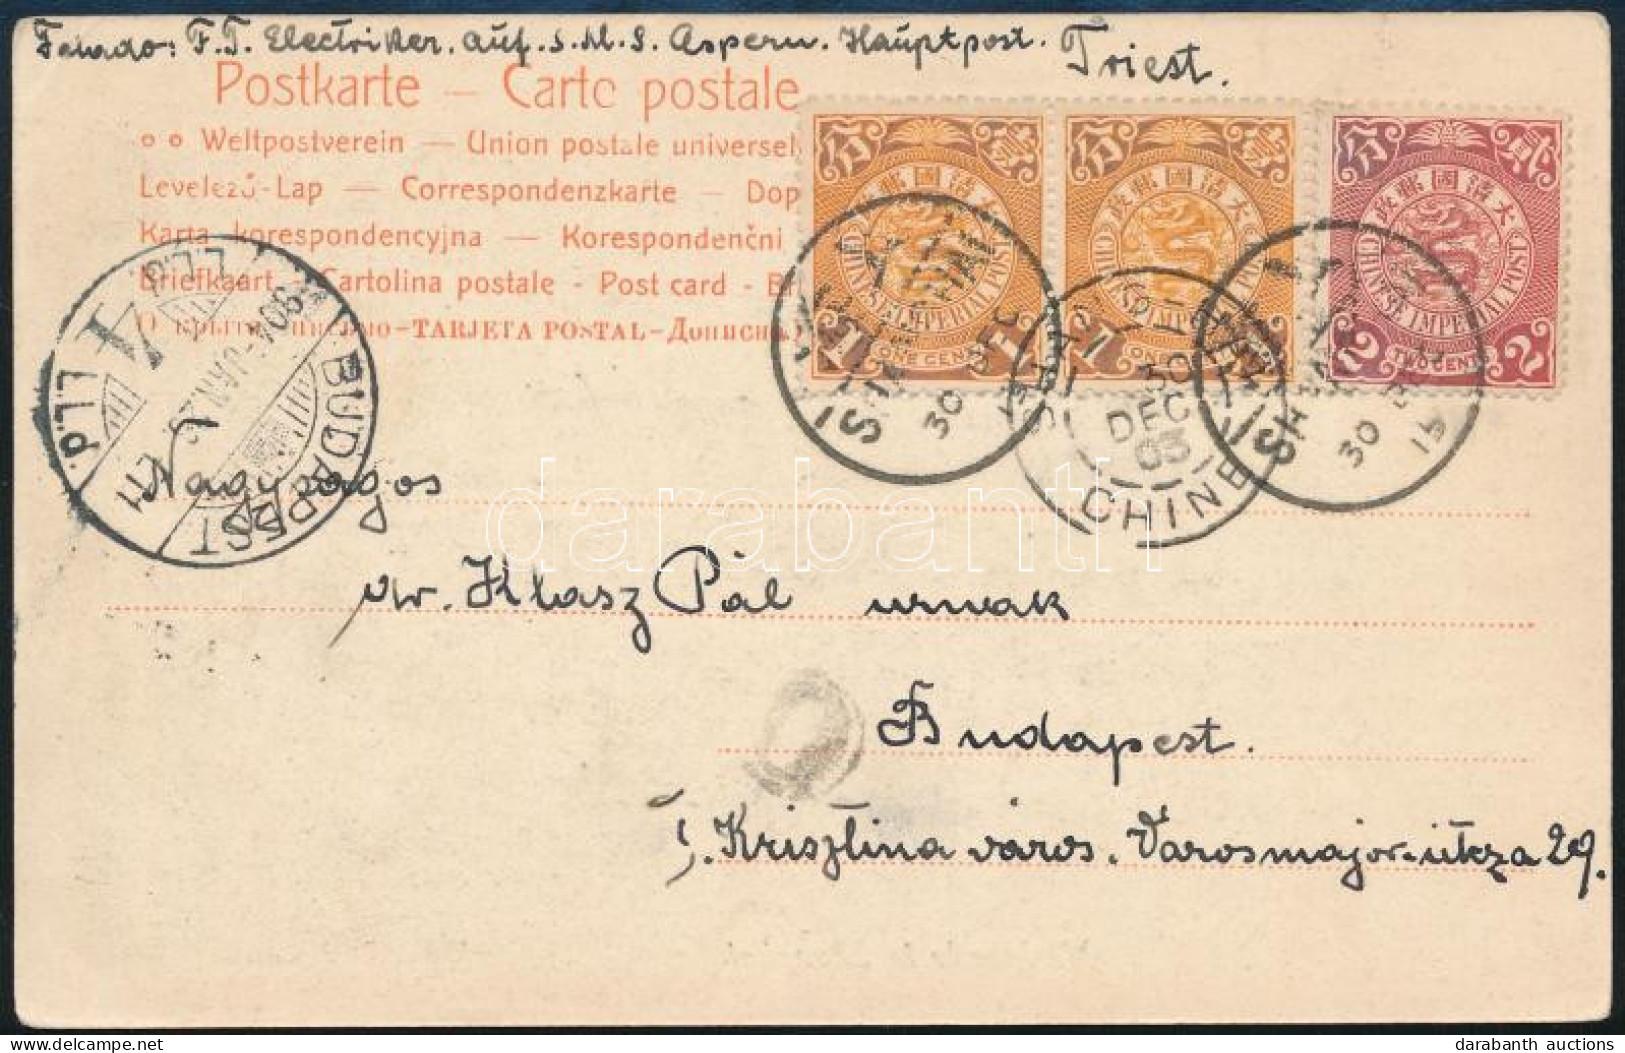 Feladó: F.T. Electriker. auf. S.M.S. Aspern. Hauptpost. Triest.
Postkarte — Carte postale
Weltpostverein — Union postale universel
Levelező-Lap — Correspondenzkarte — Dop
Karta korespondencyjna — Korespondenční
Briefkaart - Cartolina postale - Post card - B
TARJETA POSTAL
大清國郵政
CHINESE IMPERIAL POST
ONE CENT
1
大清國郵政
CHINESE IMPERIAL POST
1
貳分
大清國郵政
CHINESE IMPERIAL POST
2 TWO CENTS 2
30 DEC
30 DEC 03
CHINE
30
BUDAPEST
904 JAN
Nagyságos
Klasz Pál urnak
Budapest.
I. Krisztina város. Városmajor-utcza 29.
darabanth
darabanth auctions
www.delcampe.net